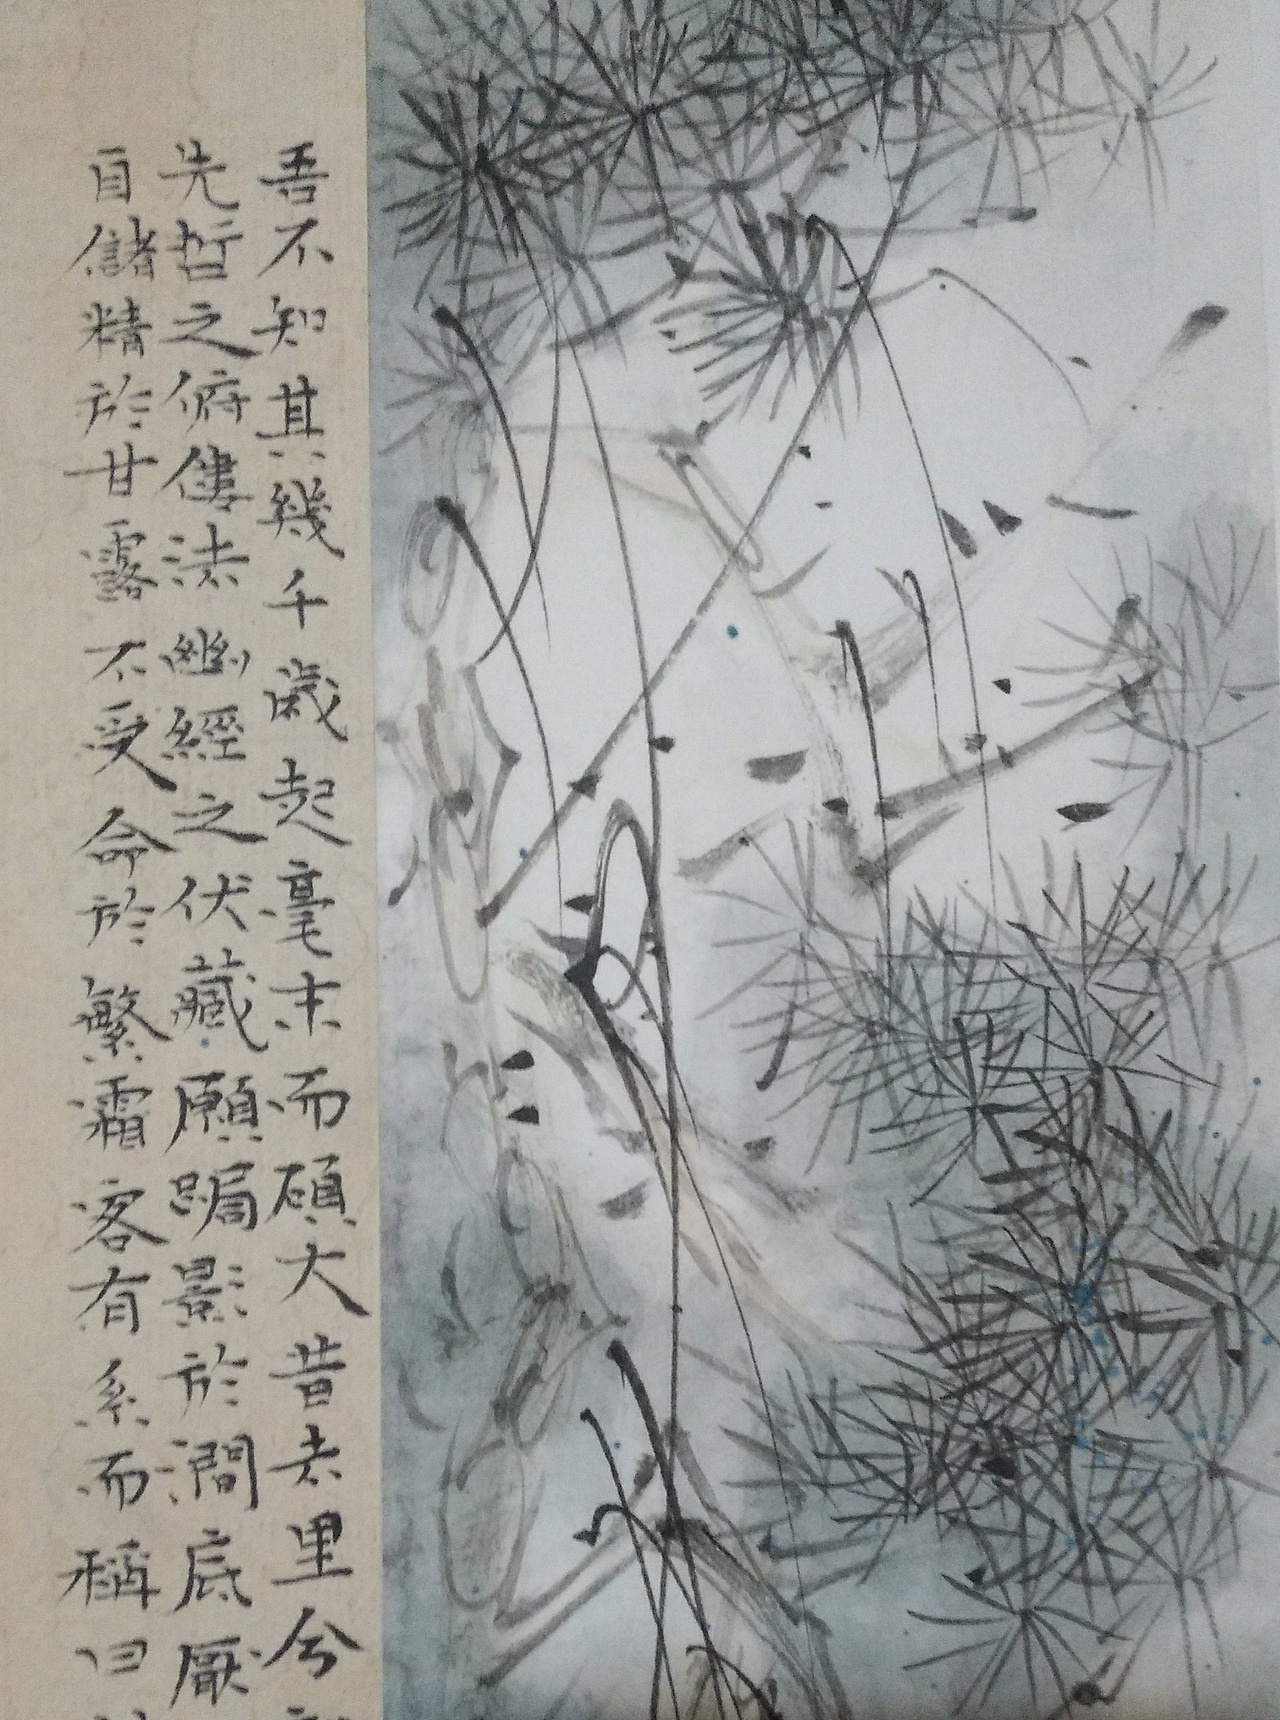 吾不知其幾千歲起毫末而碩大昔去里兮
先哲之俯僂法幽經之伏藏願跼影於澗底厭
自儲精於甘露不受命於繁霜客有系而稱曰